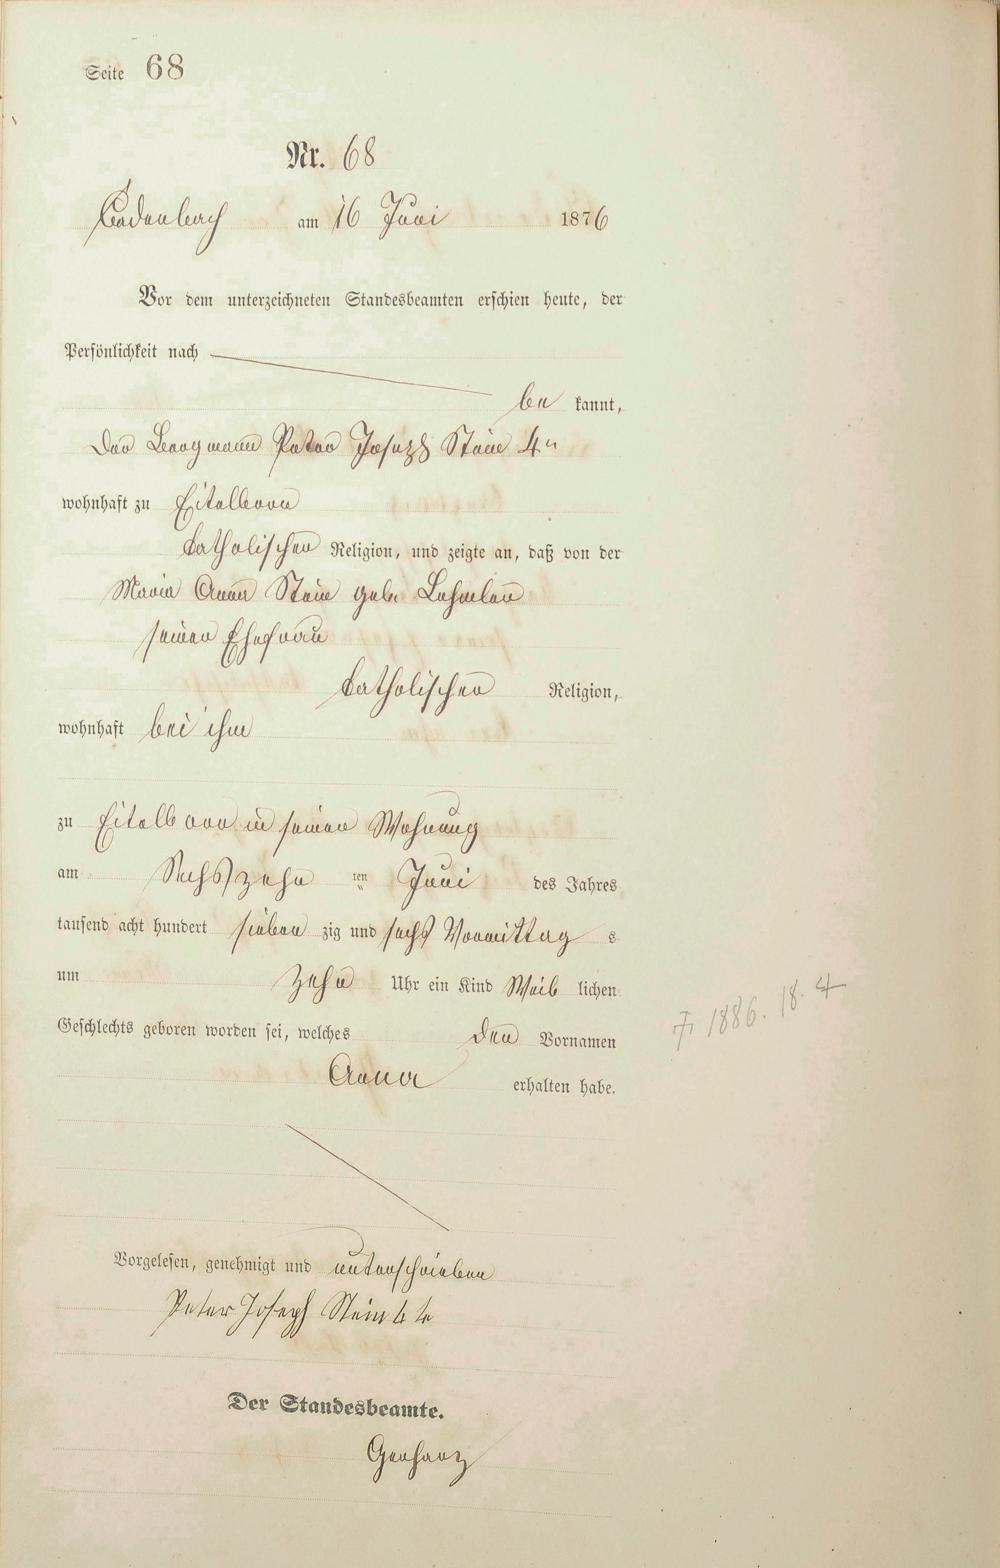 Seite 68
Nr. 68
Cadenbach am 16 Juni 1876
Vor dem unterzeichneten Standesbeamten erschien heute, der
Persönlichkeit nach
be kannt,
Der Bergmann Peter Joseph Stein 4"
wohnhaft zu Eitelborn
katholischer Religion, und zeigte an, daß von der
Maria Anna Stein geb. Lehmler
seiner Ehefrau
katholischer Religion,
wohnhaft bei ihm
zu Eitelborn in seiner Wohnung
am Sechszehn ten Juni des Jahres
tausend acht hundert sieben zig und sechs Vormittag s
um Zehn Uhr ein Kind Weib lichen
Geschlechts geboren worden sei, welches den Vornamen
Anna erhalten habe.
† 1886. 18. 4
Vorgelesen, genehmigt und unterschrieben
Peter Joseph Stein 4 te
Der Standesbeamte.
Gerharz